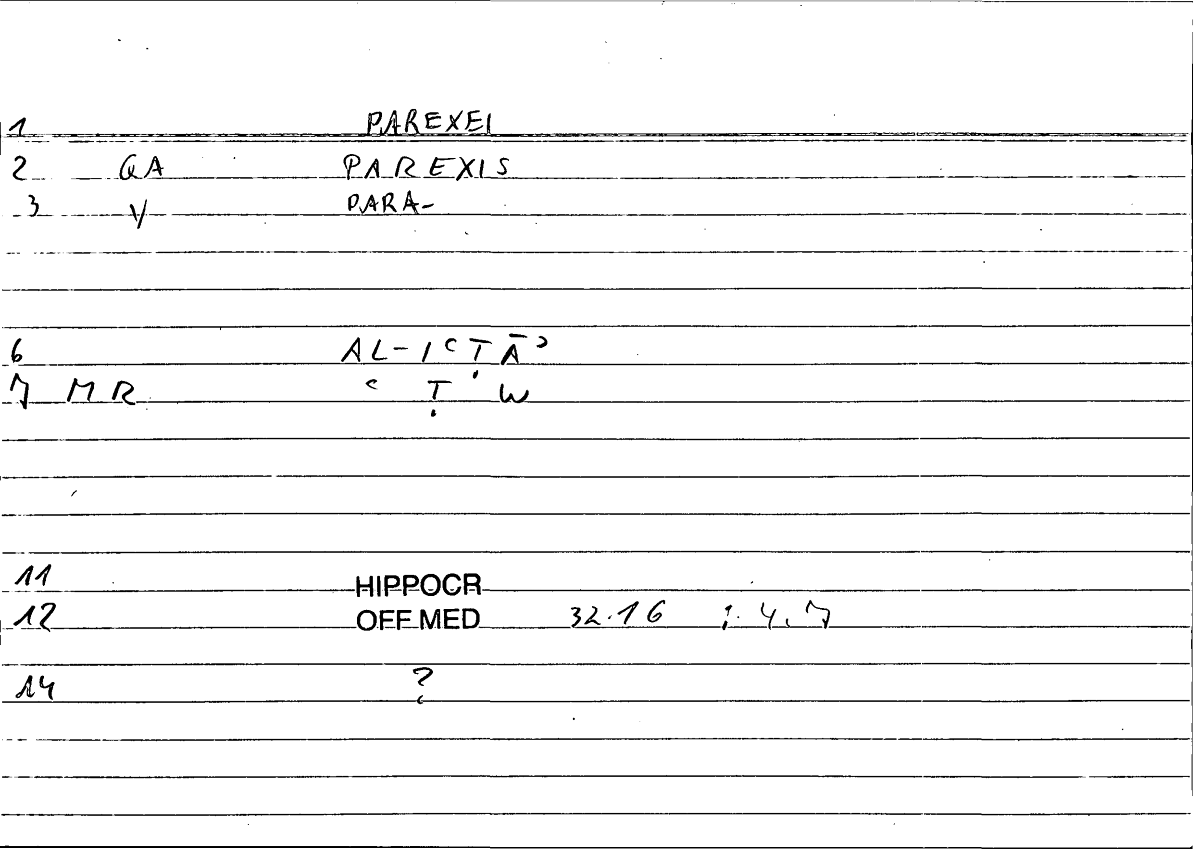 1 PAREXEI
2 QA PAREXIS
3 V PARA-
6 AL-IʿṬĀʾ
7 MR ʿ Ṭ W
11 HIPPOCR
12 OFF MED 32.16 ; 4.7
14 ?